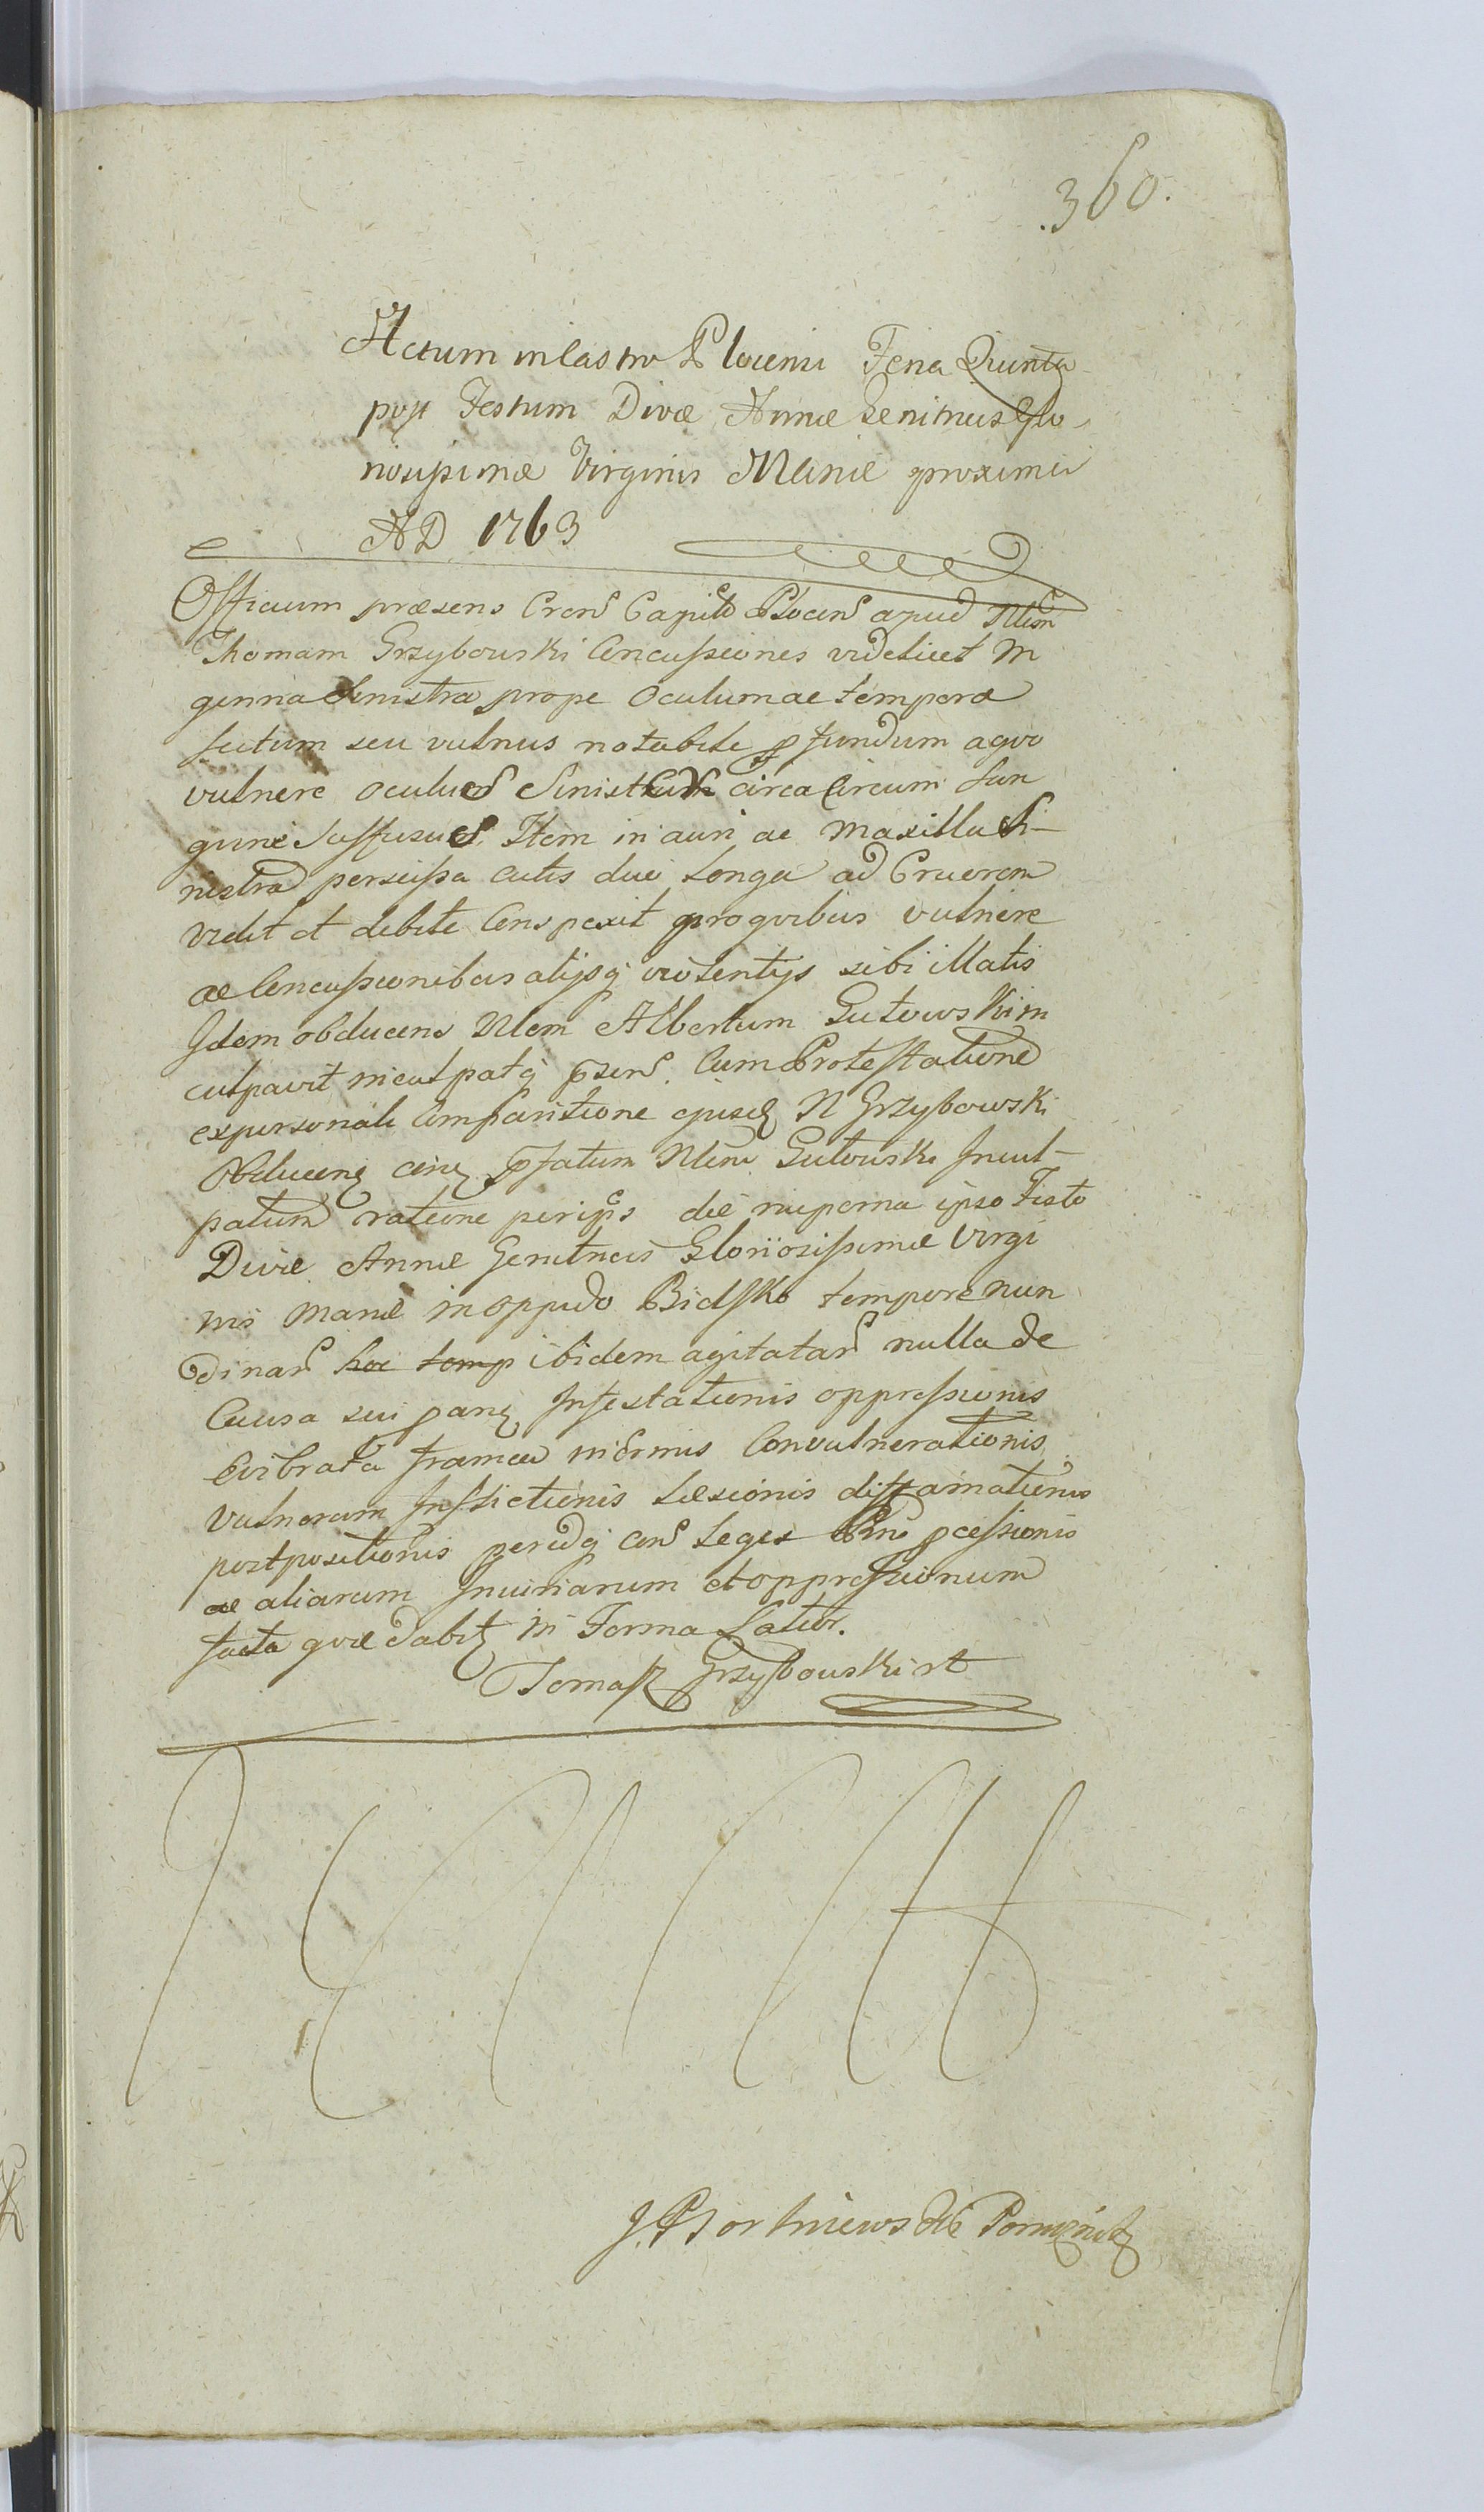 .360.
Actum in Castro Plocensi Feria Quinta
post Festum Divæ Annæ Genitricis Glo-
riosissimæ Virginis Mariæ proxima
AD 1763
Officium præsens Cren̄ Capitle Plocen̄ apud Nlem
Thomam Grzybowski Concussiones videlicet in
genna Sinistra prope Oculum ac tempora
ictum seu vulnus notabile pfundum a quo
vulnere oculus Sinister circa Circum San
guine Suffusus. Item in auri ac maxilla si-
nistra perscissa cutis duæ longa ad Cruorem
vidit et debite Conspexit pro quibus vulnere
ac Concussionibus alijsq violentijs sibi illatis
Idem obducens Nlem Albertum Gutowski in
culpavit inculpatq pzens. Cum Protestatione
ex personali Comparitione ejusd N Grzybowski
Obducen cên pfatum Nlem Gutowski Incul-
patum ratione per ips die nuperna ipso Festo
Divæ Annæ Genitricis Gloriosissimæ Virgi
nis Mariæ in Oppido Bielsko tempore nun
dinar̄ hoc temp ibidem agitatar̄ nulla de
Causa sui part Infestationis oppressionis
Evibrata framea inermis Convulnerationis
Vulnerum Inflictionis Læsionis diffamationis
postpositionis peridq con̄ Leges pcessionis
ac aliarum Iniuriarum et oppressionum
facta quæ dabit in Forma Latior.
Tomasz Grzybowski rt
J. Psortniewski